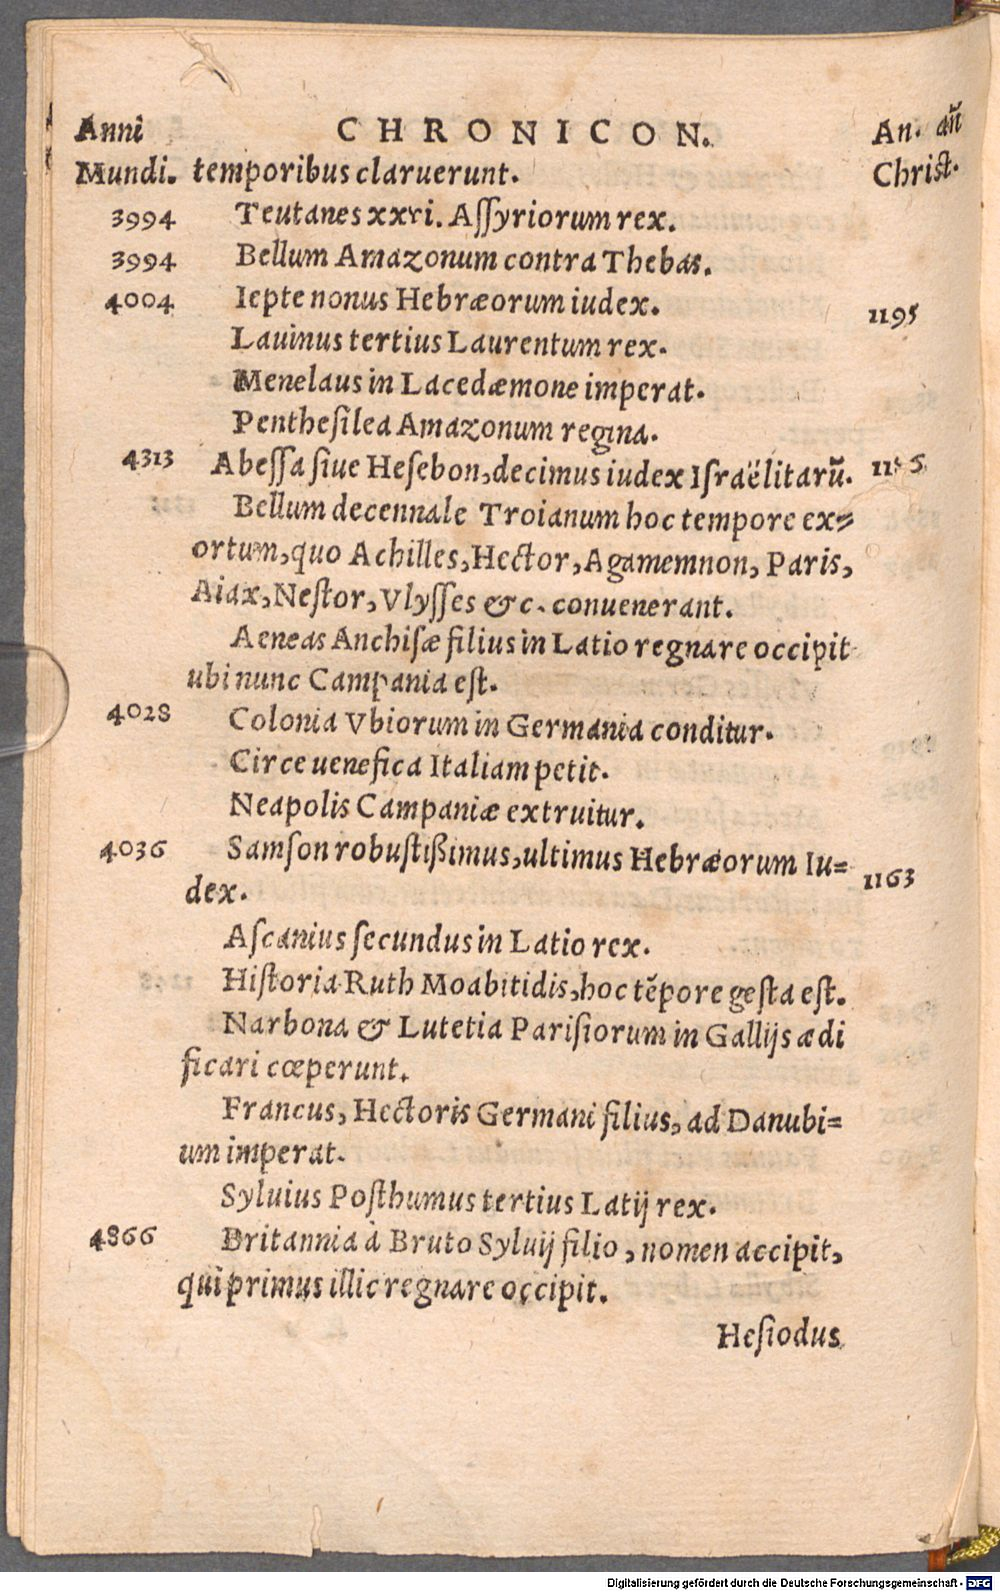 Anni CHRONICON. An. añ
Mundi. temporibus claruerunt. Christ.
3994 Teutanes xxvi. Aſſyriorum rex.
3994 Bellum Amazonum contra Thebas.
4004 Iepte nonus Hebræorum iudex. 1195
Lauinus tertius Laurentum rex.
Menelaus in Lacedæmone imperat.
Pentheſilea Amazonum regina.
4313 Abeſſa ſiue Heſebon, decimus iudex Iſraëlitarũ.
Bellum decennale Troianum hoc tempore ex=
ortum, quo Achilles, Hector, Agamemnon, Paris,
Aiax, Neſtor, Vlyſſes &c. conuenerant.
Aeneas Anchiſæ filius in Latio regnare occipit
ubi nunc Campania eſt.
4028 Colonia Vbiorum in Germania conditur.
Circe uenefica Italiam petit.
Neapolis Campaniæ extruitur.
4036 Samſon robuſtißimus, ultimus Hebræorum Iu= 1163
dex.
Aſcanius ſecundus in Latio rex.
Hiſtoria Ruth Moabitidis, hoc tẽpore geſta eſt.
Narbona & Lutetia Pariſiorum in Gallijs ædi
ficari cœperunt.
Francus, Hectoris Germani filius, ad Danubi=
um imperat.
Syluius Poſthumus tertius Latij rex.
4866 Britannia à Bruto Syluij filio, nomen accipit,
qui primus illic regnare occipit.
Heſiodus
Digitalisierung gefördert durch die Deutsche Forschungsgemeinschaft - DFG